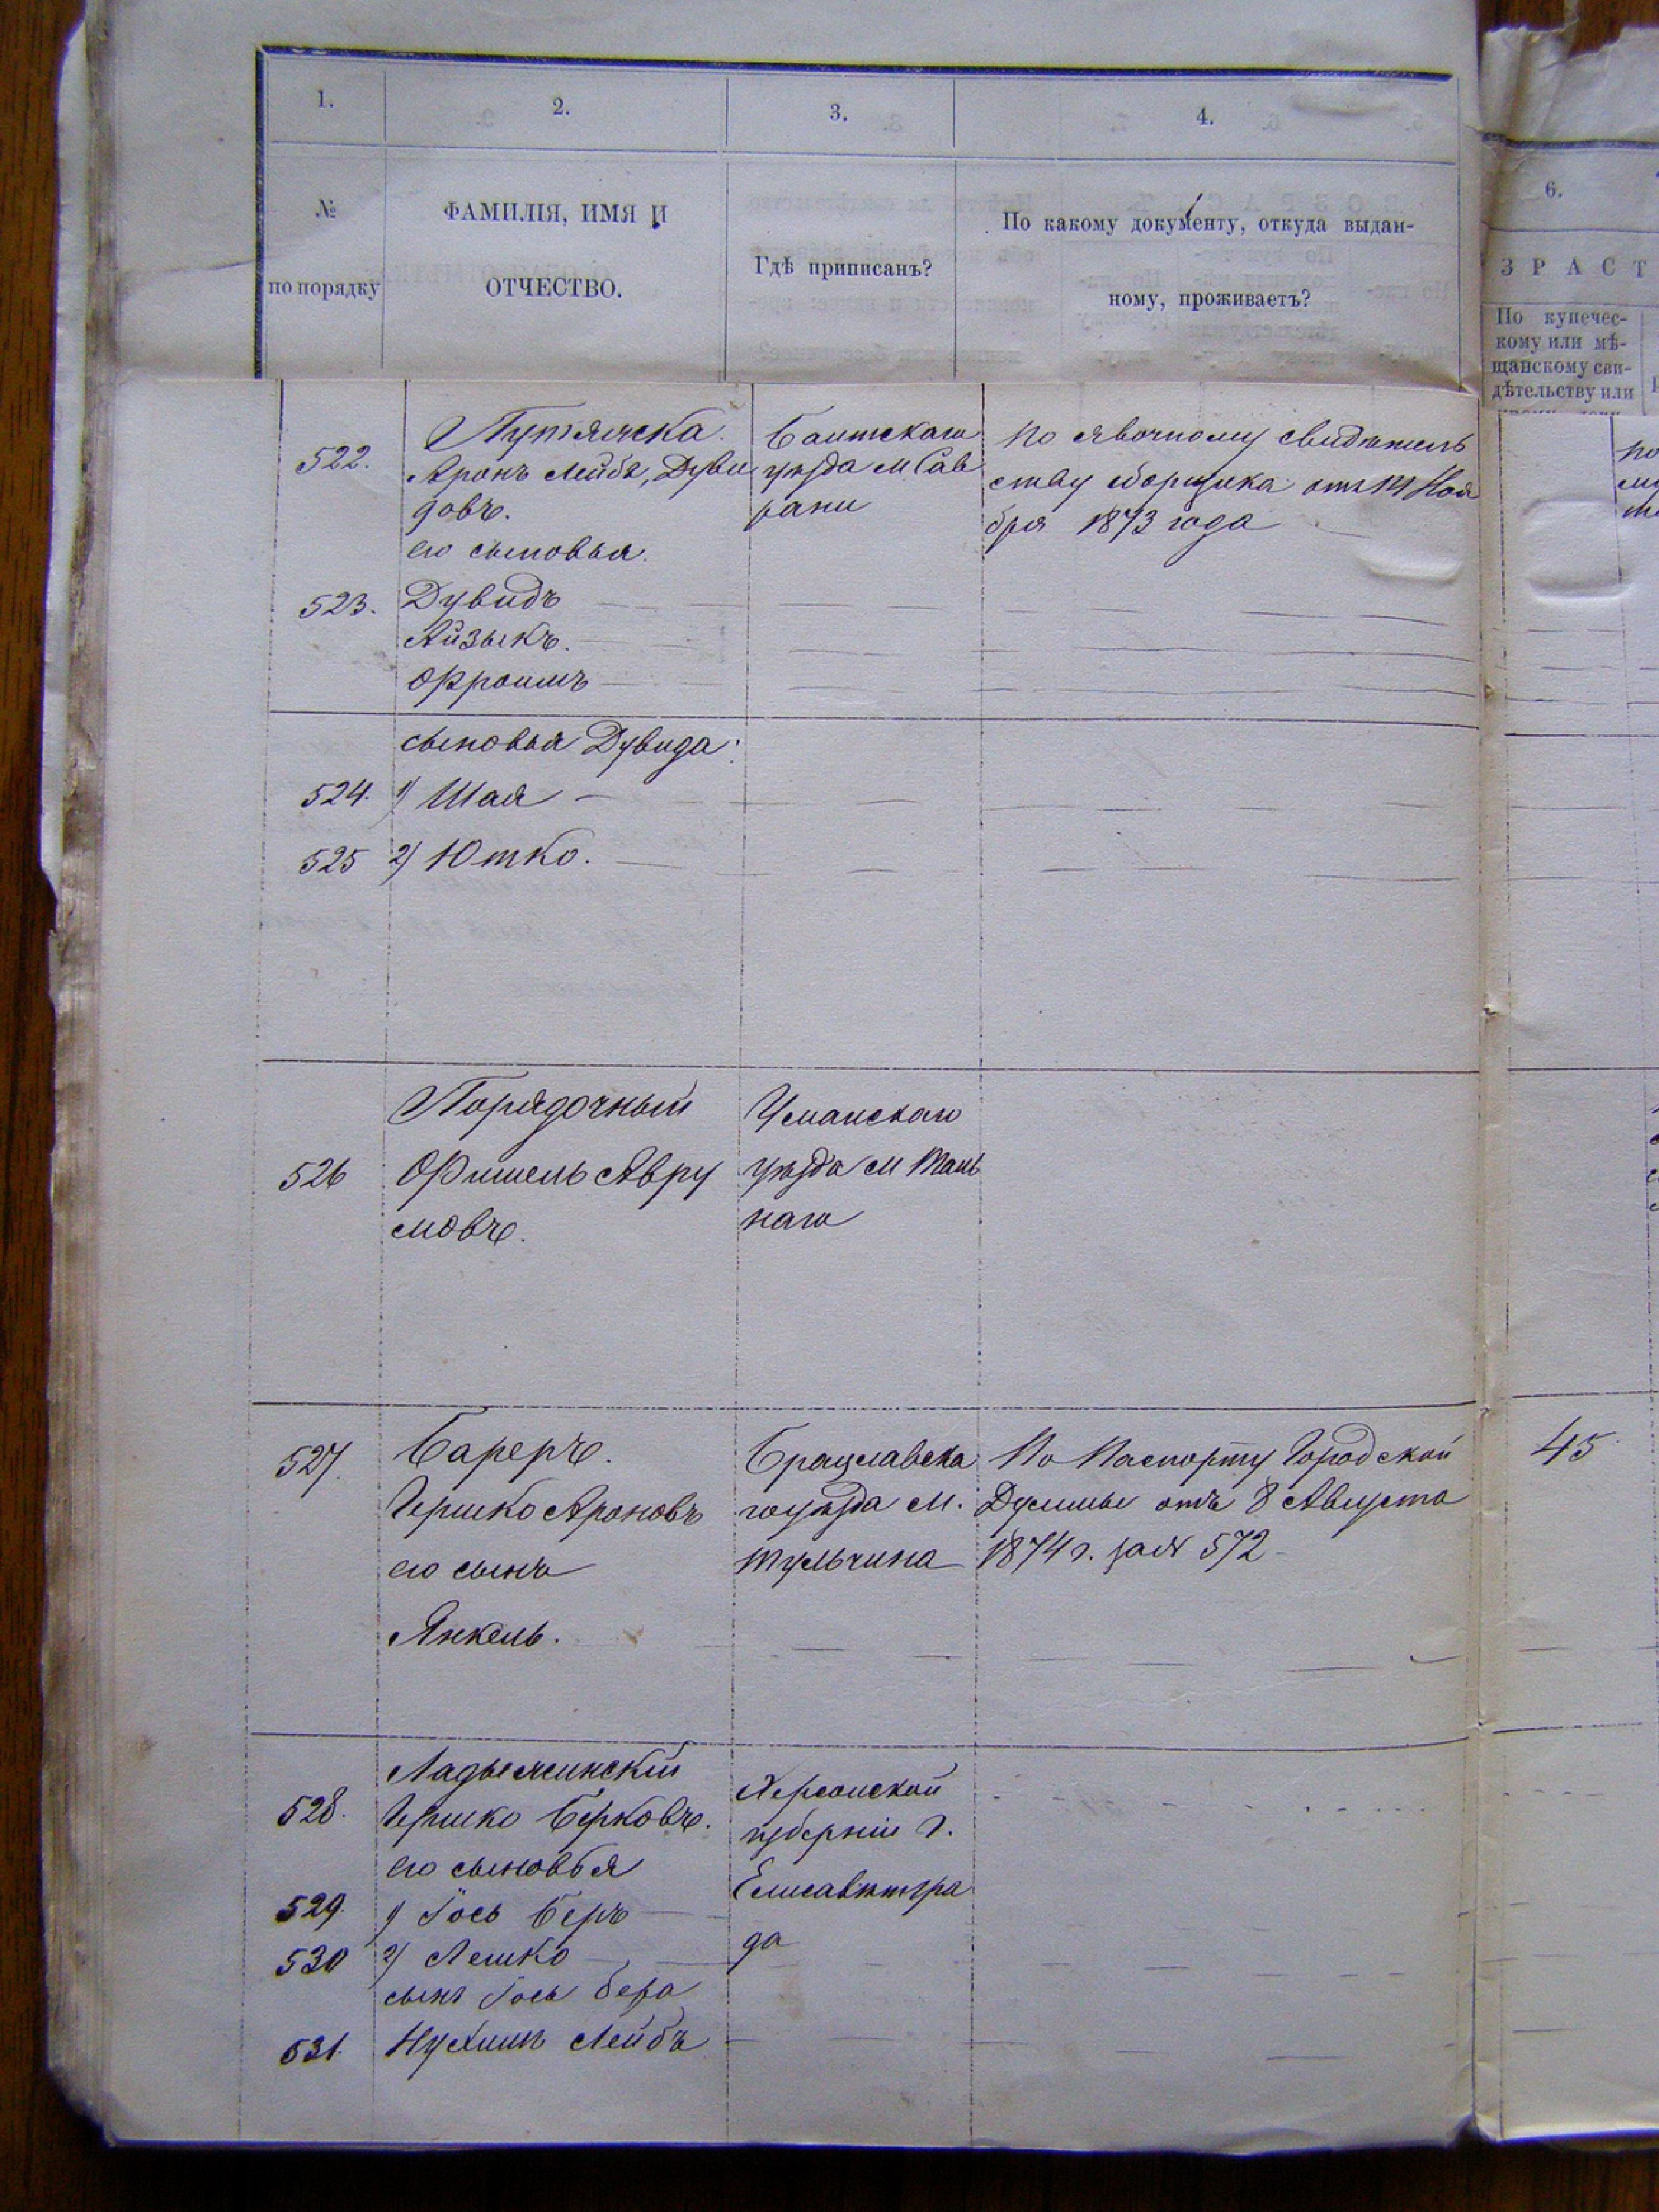 1.
2.
3.
4.
6.
№
по порядку
ФАМИЛІЯ, ИМЯ И
ОТЧЕСТВО.
Гдѣ приписанъ?
По какому документу, откуда выдан-
ному, проживаетъ?
ЗРАСТ
По купечес-
кому или мѣ-
щанскому сви-
дѣтельству или
522.
Аронъ Лейба, Дуви
довъ.
его сыновья.
Балтскаго
уѣзда м Сав
рани
по явочному свидѣтель
ству сборщика отъ Ноя
бря 1873 года
523. Дувидъ
Айзыкъ.
Фроимъ
сыновья Дувида:
524. 1) Шая
525 2) Ютко.
Порядочный
526 Фишель Авру
мовъ.
Уманскаго
уѣзда м Таль
наго
527. Бареръ.
Гершко Ароновъ
его сынъ
Янкель.
Брацлавска
го уѣзда м.
Тульчина
По Паспорту Городской
Думы отъ 8 Августа
1874 г. за № 572
45
Ладыжинскій
528. Гершко Берковъ.
его сыновья
529. 1) Іось Беръ
530 2) Лешко
сынъ Іось Бера
531. Нухимъ Лейбъ
Херсонской
губерніи г.
Елисаветгра
да